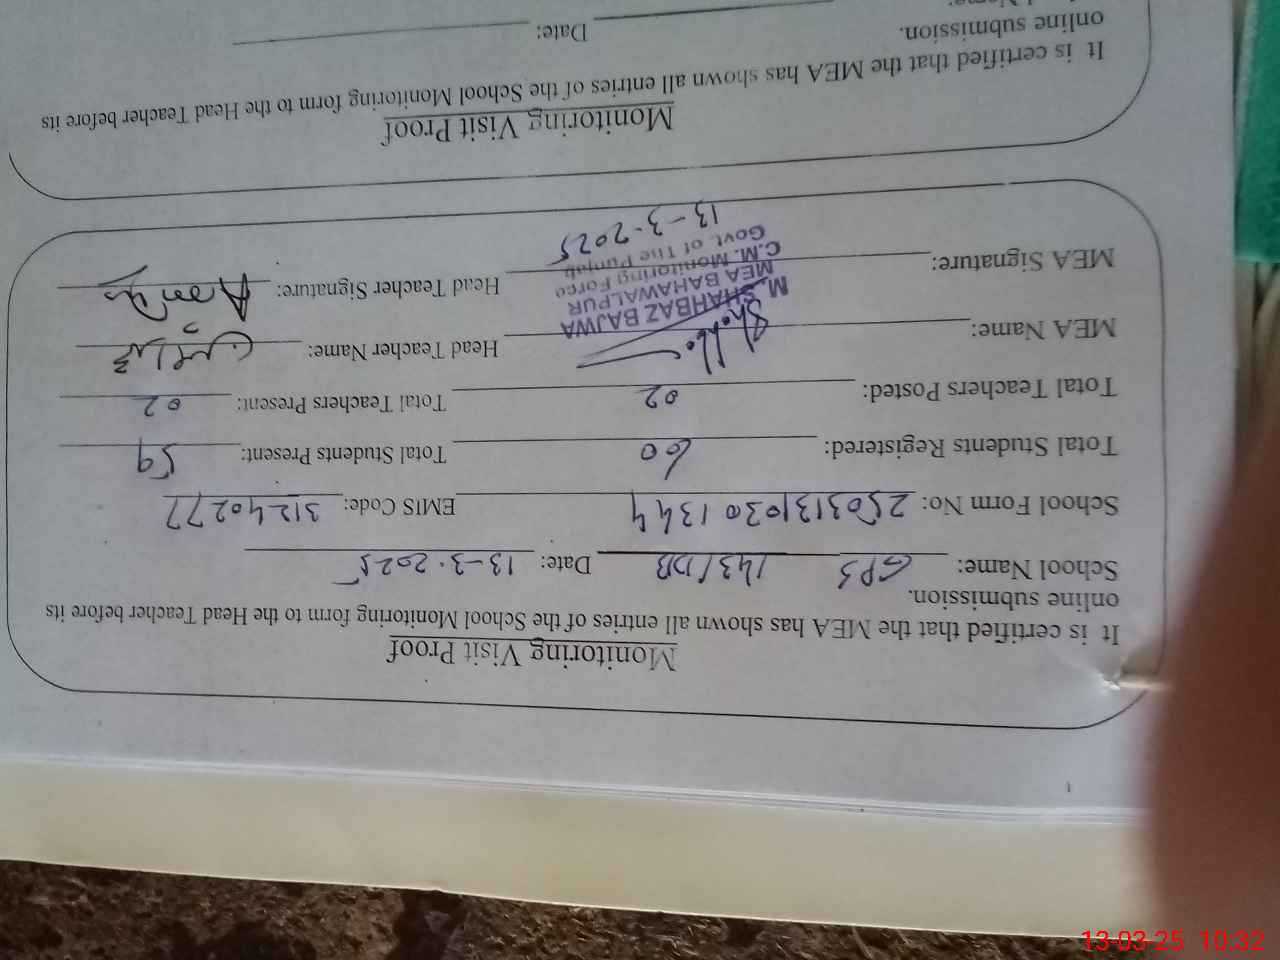 Monitoring Visit Proof
It is certified that the MEA has shown all entries of the School Monitoring form to the Head Teacher before its
online submission.
School Name: GPS 143/DB Date: 13-3-2025
School Form No: 2503131030 1344 EMIS Code: 31240277
Total Students Registered: 60 Total Students Present: 59
Total Teachers Posted: 02 Total Teachers Present: 02
MEA Name: Head Teacher Name:
M. SHAHBAZ BAJWA
MEA BAHAWALPUR
C.M. Monitoring Force
Govt. of The Punjab
MEA Signature: Head Teacher Signature:
13-3-2025
Monitoring Visit Proof
It is certified that the MEA has shown all entries of the School Monitoring form to the Head Teacher before its
online submission.
Date:
13-03-25 10:32